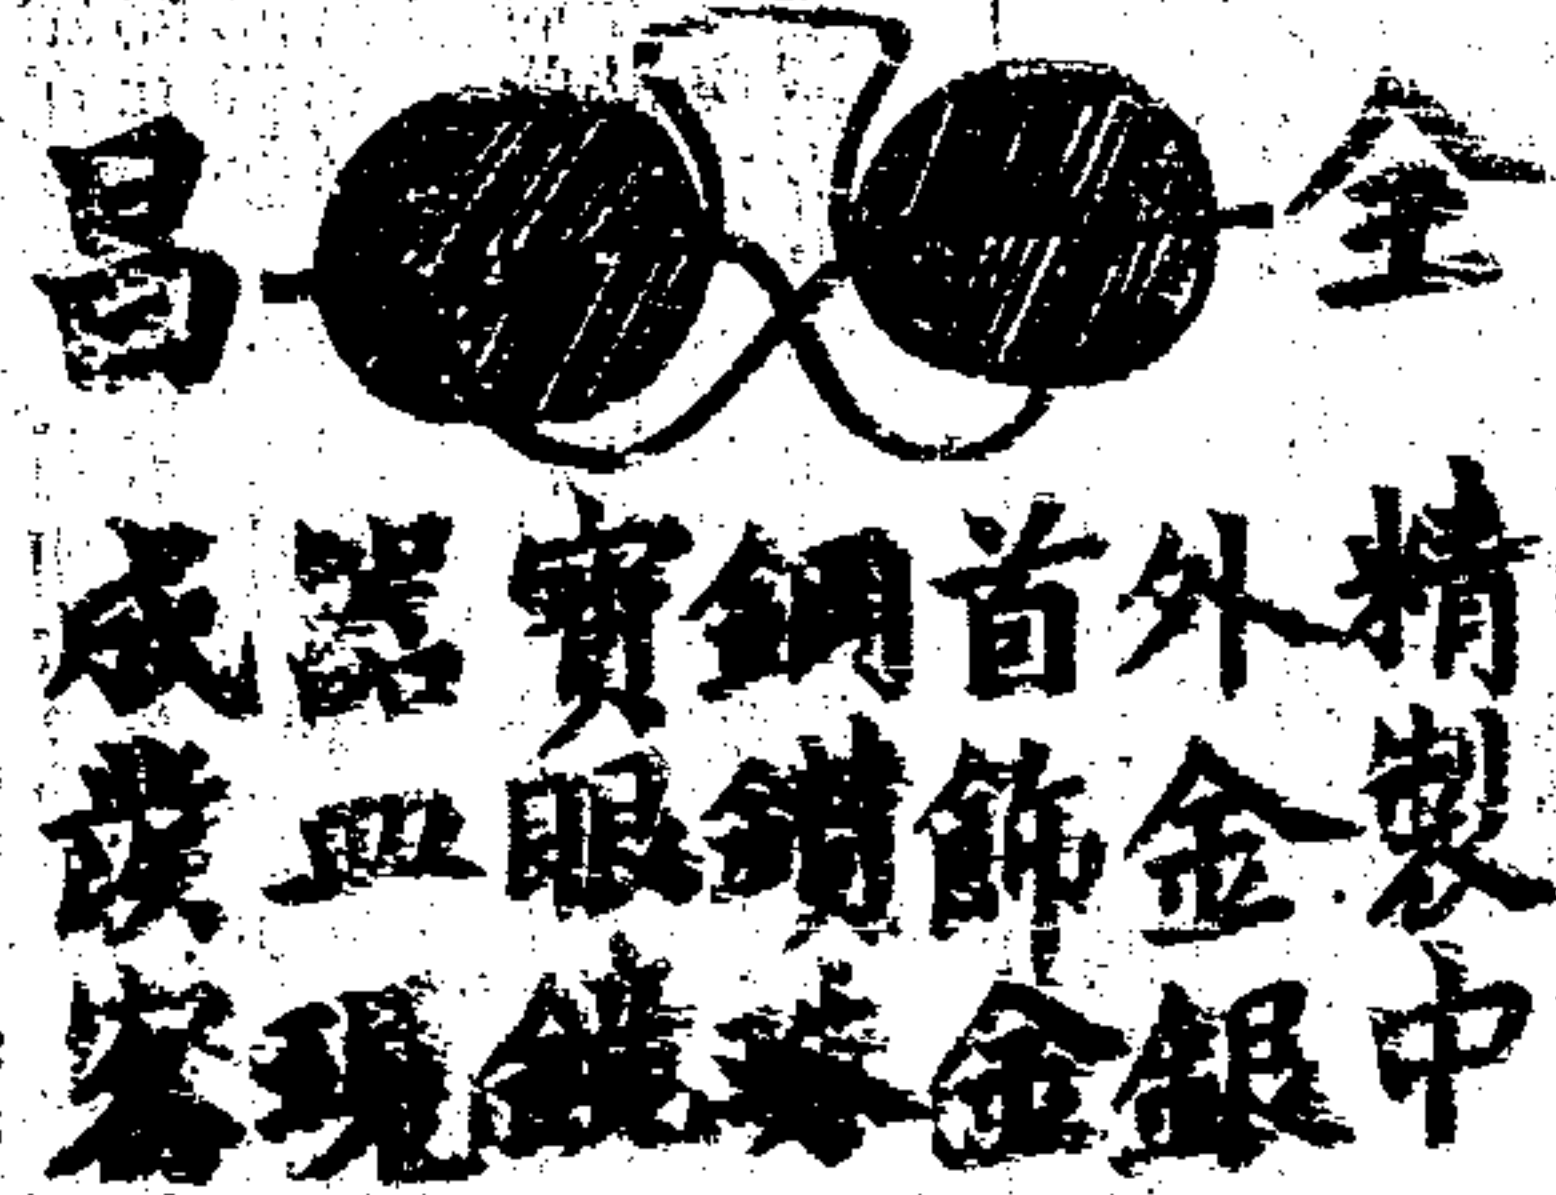 全昌
精製中
外金銀
首飾金
鋼鑽
寶眼鏡
器皿現
成發客